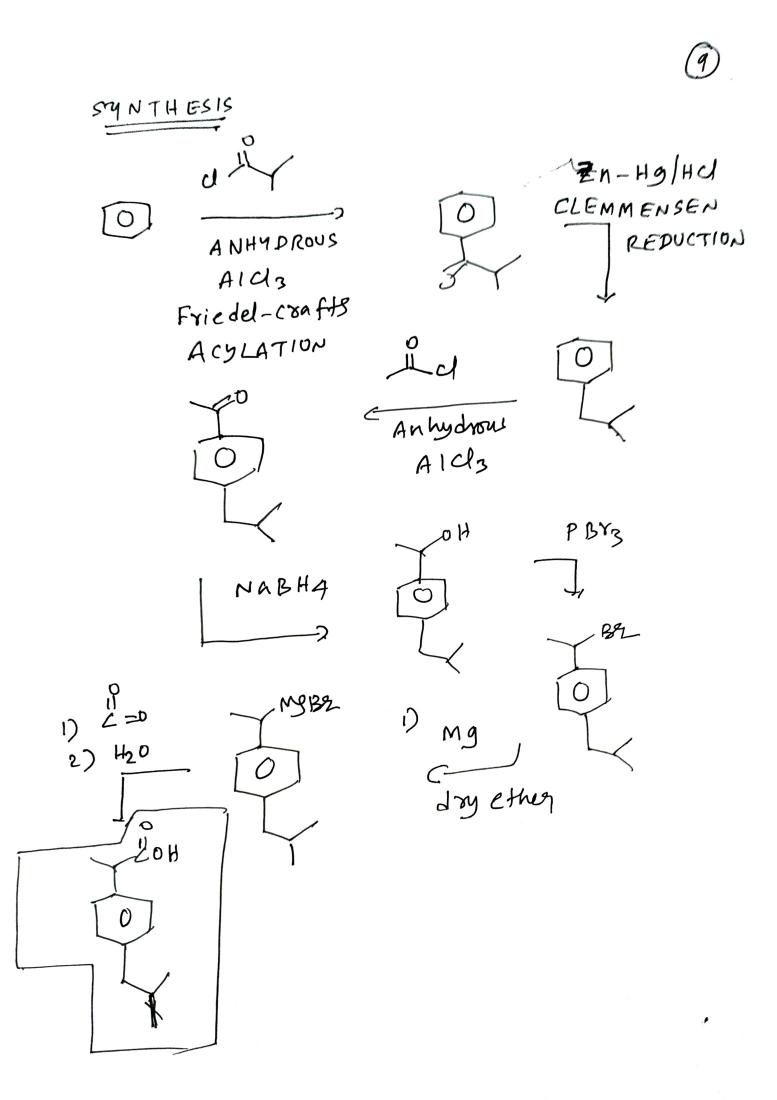 9
SYNTHESIS
O
Cl
Zn-Hg/HCl
CLEMMENSEN
REDUCTION
O
ANHYDROUS
AlCl3
Friedel-crafts
ACYLATION
O
O
O
Cl
Anhydrous
AlCl3
O
O
O
NaBH4
OH
O
PBr3
Br
O
1) Mg
dry ether
MgBr
O
O
1) C=O
2) H2O
O
COH
O